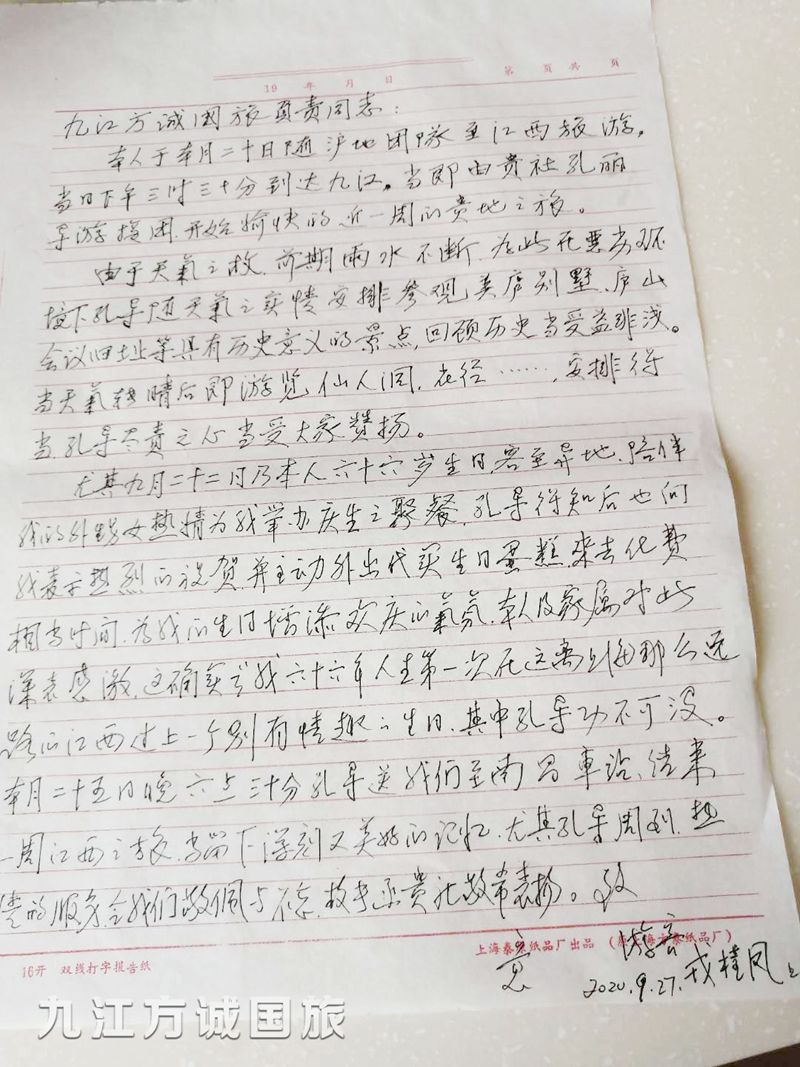 19 年 月 日 第 页共 页
九江方诚国旅负责同志：
本人于本月二十日随沪地团队至江西旅游，
当日下午三时三十分到达九江。当即由贵社孔丽
导游接团，开始愉快的近一周的贵地之旅。
由于天氣之故，前期雨水不断，为此在恶劣环
境下孔导随天氣之实情安排参观美庐别墅、庐山
会议旧址等具有历史意义的景点，回顾历史当受益非浅。
当天氣转晴后即游览仙人洞，花径……，安排得
当，孔导尽责之心当受大家赞扬。
尤其九月二十二日乃本人六十六岁生日，客至异地，陪伴
我的外甥女热情为我举办庆生之聚餐，孔导得知后也向
我表示热烈的祝贺，并主动外出代买生日蛋糕，来去化费
相当时间，为我的生日增添欢庆的氣氛，本人及家属对此
深表感激，这确实是我六十六年人生第一次在这离上海那么远
路的江西过上一个别有情趣之生日，其中孔导功不可没。
本月二十五日晚六点三十分孔导送我们至南昌車站，结束
一周江西之旅，当留下深刻又美好的记忆，尤其孔导周到、热
情的服务，令我们敬佩与不忘，故书函贵社敬希表扬。致
意 游客
2020.9.27. 戎桂凤上
16开 双线打字报告纸 上海泰 纸品厂出品 纸品厂）
九江方诚国旅